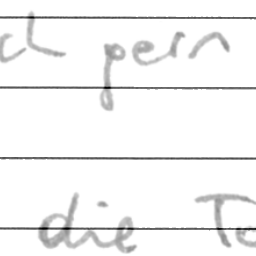 ch pern
die To